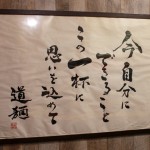 今自分に
できること
この一杯に
思いを込めて
道麺